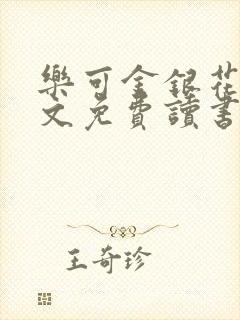 樂可金銀花
文免費讀書
王奇珍